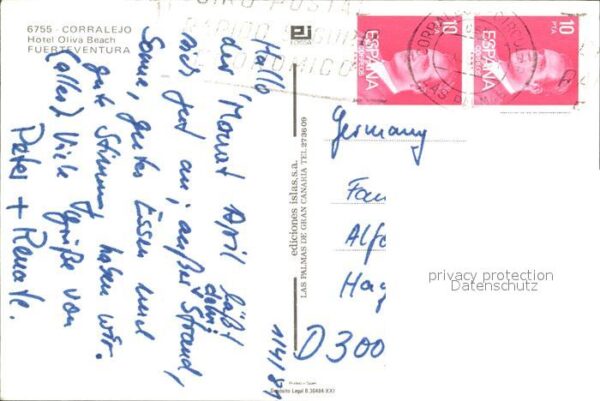 6755 - CORRALEJO
Hotel Oliva Beach
FUERTEVENTURA
Hallo,
der Monat April läßt
sich gut an; außer Strand,
Sonne, gutes Essen und
gute Stimmung haben wir.
(alles) Viele Grüße von
Peter + Renate.
1/4/81
ediciones islas,s.a.
LAS PALMAS DE GRAN CANARIA TEL. 273609
Depósito Legal B. 30484-XXI
10
PTA
ESPAÑA
CORREOS
10
PTA
ESPAÑA
CORREOS
Germany
Fa
Alfo
Hag
D 300
privacy protection
Datenschutz